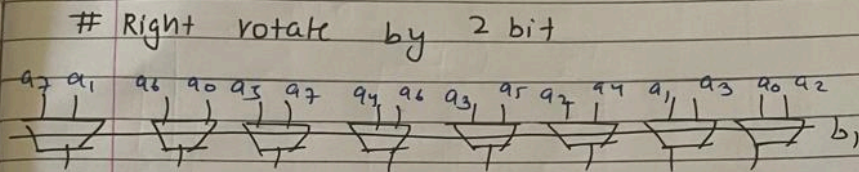 # Right rotate by 2 bit
a7 a1 a6 a0 a5 a7 a4 a6 a3 a5 a2 a4 a1 a3 a0 a2
b1